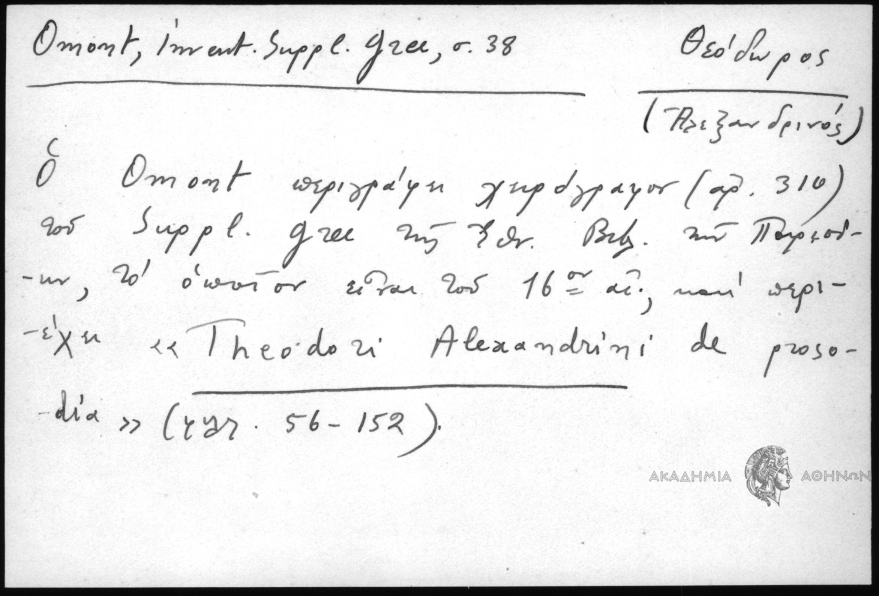 Omont, invent. Suppl. grec, σ. 38
Θεόδωρος
(Ἀλεξανδρινός)
Ὁ Omont περιγράφει χειρόγραφον (ἀρ. 310)
τοῦ Suppl. grec τῆς Ἐθν. Βιβ. τῶν Παρισί-
-ων, τὸ ὁποῖον εἶναι τοῦ 16ου αἰ., καὶ περι-
-έχει «Theodori Alexandrini de proso-
-dia» (φυλ. 56-152).
ΑΚΑΔΗΜΙΑ ΑΘΗΝΩΝ